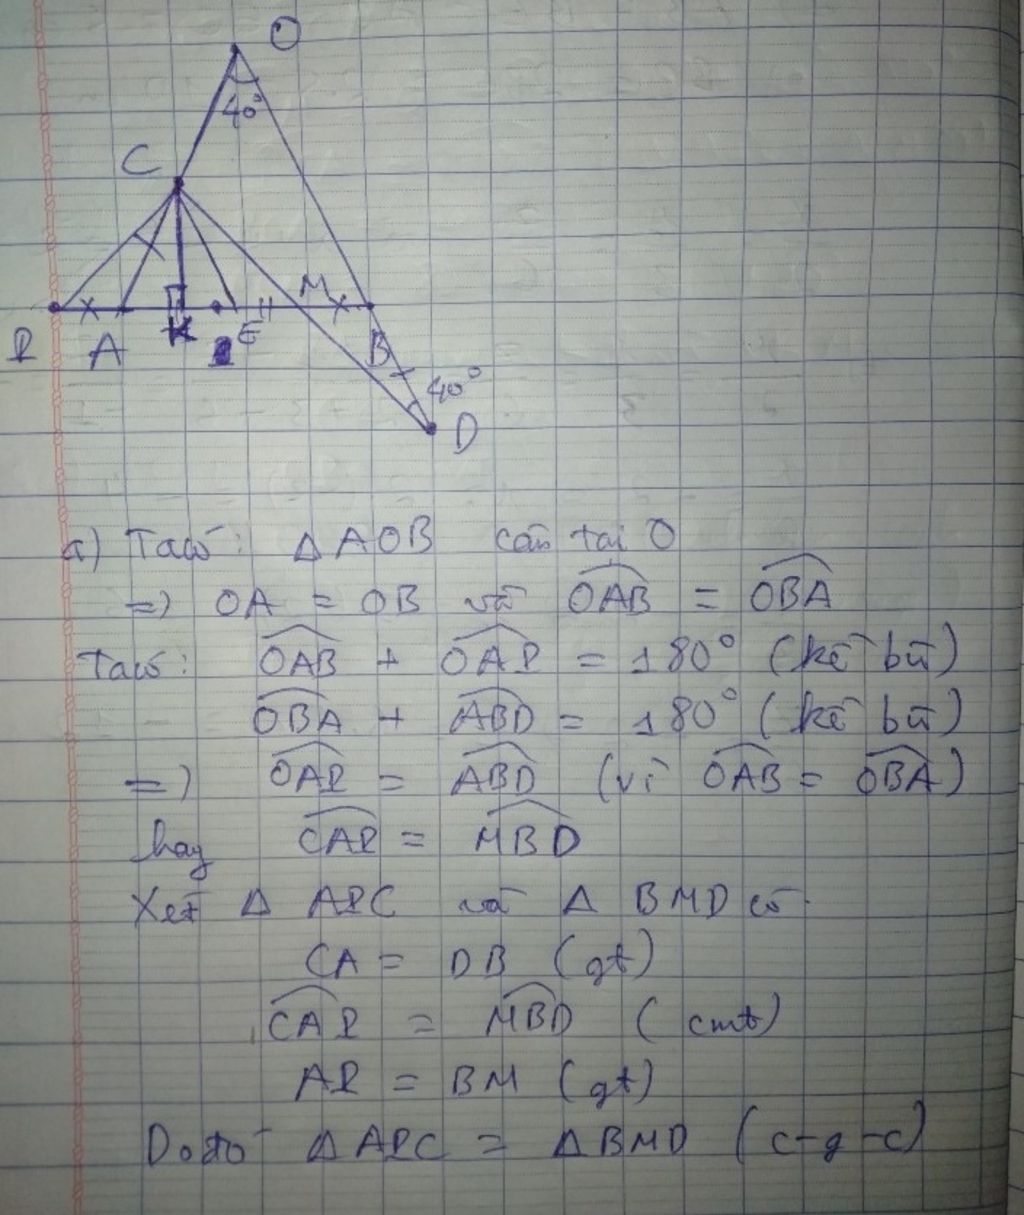 O
40°
C
M
I A K I E B
40°
D
a) Ta có: Δ AOB cân tại O
=> OA = OB và OAB = OBA
Ta có: OAB + OAI = 180° (kề bù)
OBA + ABD = 180° (kề bù)
=> OAI = ABD (vì OAB = OBA)
hay CAI = MBD
Xét Δ AIC và Δ BMD có
CA = DB (gt)
CAI = MBD (cmt)
AI = BM (gt)
Do đó Δ AIC = Δ BMD (c-g-c)